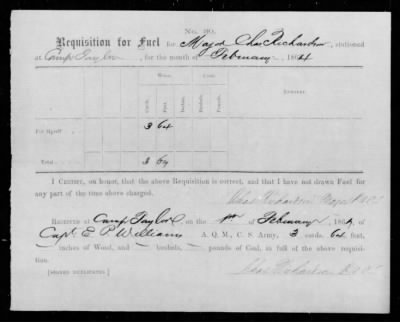 No. 40.
Requisition for Fuel for Major Chas Richardson, stationed
at Camp Taylor, for the month of February, 1864
Wood. Coal.
Cords. Feet. Inches. Bushels. Pounds. Remarks.
For Myself 3 64
Total 3 64
I Certify, on honor, that the above Requisition is correct, and that I have not drawn Fuel for
any part of the time above charged.
Chas Richardson Major
Received at Camp Taylor on the 1st of February, 1864, of
Capt. E P Williams A. Q. M., C. S. Army, 3 cords, 64 feet,
— inches of Wood, and — bushels, — pounds of Coal, in full of the above requisi-
tion.
Chas Richardson
[SIGNED DUPLICATES.]